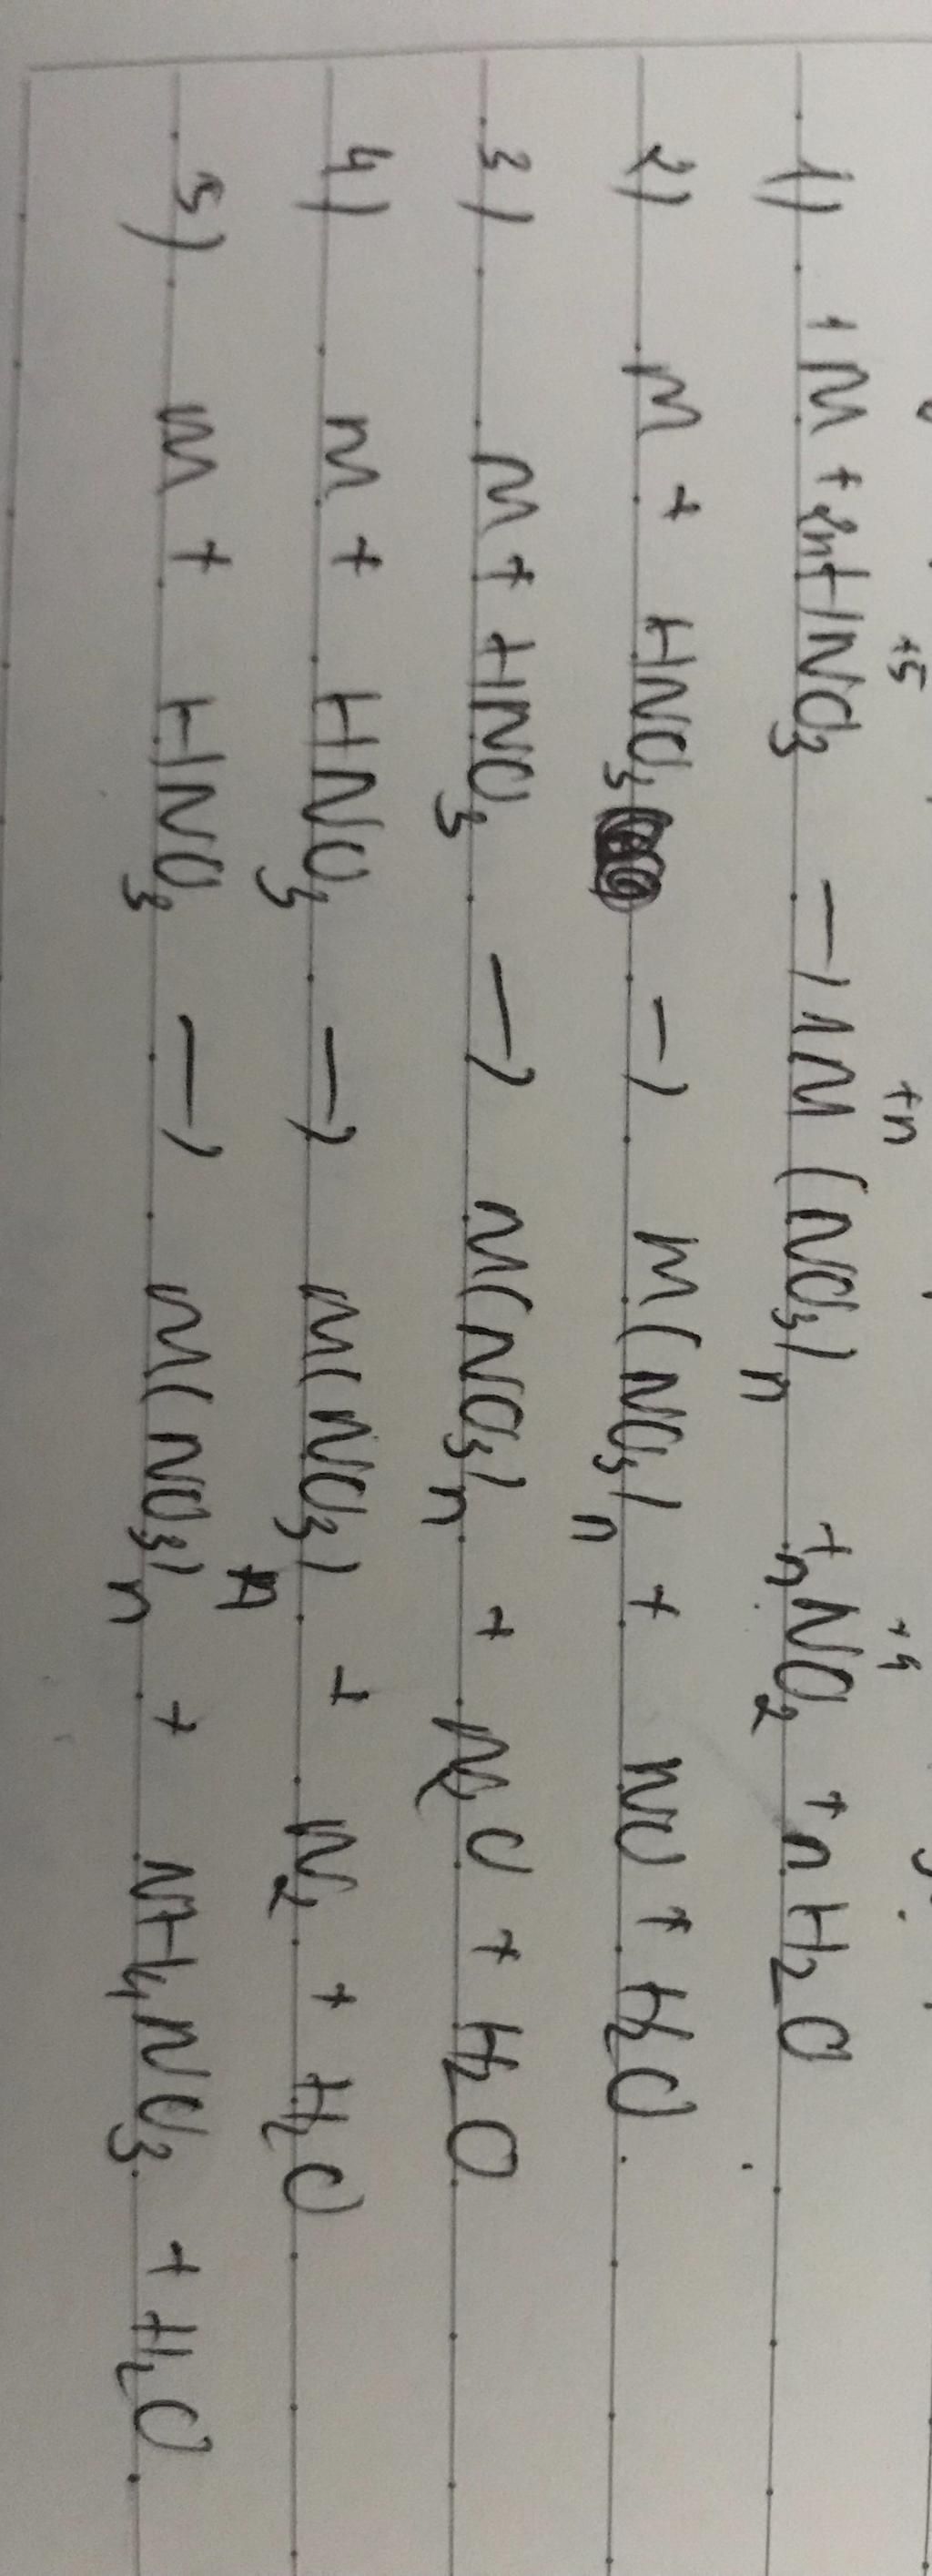 +5 +n +4
1) 1M + 2nHNO3 → 1M(NO3)n + nNO2 + nH2O
2) M + HNO3 → M(NO3)n + NO + H2O
3) M + HNO3 → M(NO3)n + N2O + H2O
4) M + HNO3 → M(NO3)n + N2 + H2O
5) M + HNO3 → M(NO3)n + NH4NO3 + H2O